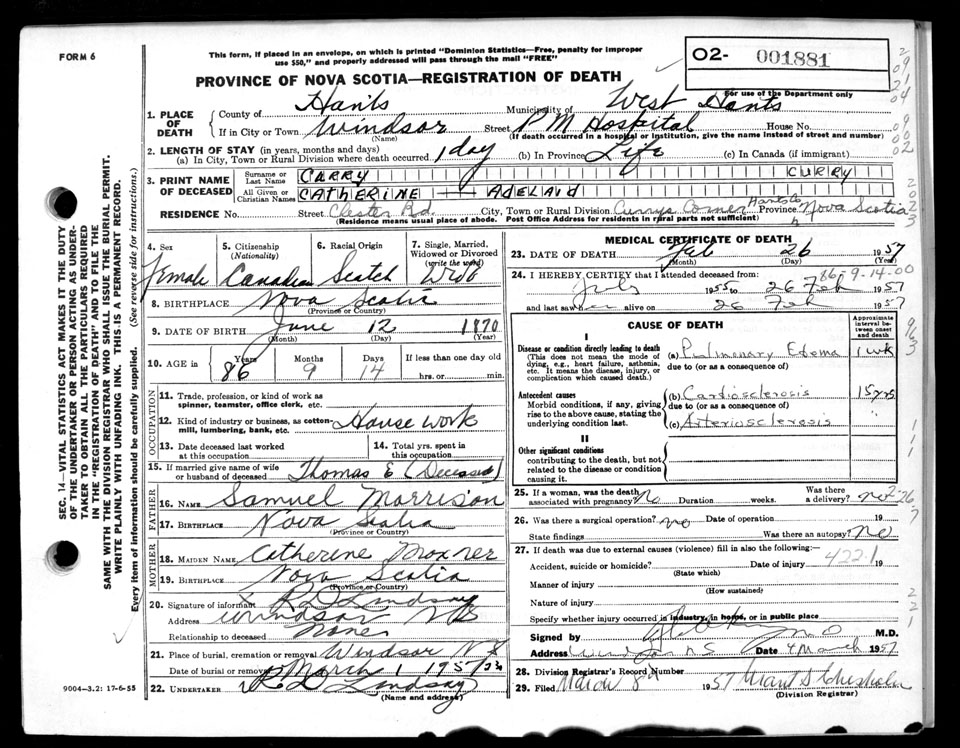 FORM 6
This form, if placed in an envelope, on which is printed "Dominion Statistics—Free, penalty for improper
use $50," and properly addressed will pass through the mail "FREE"
02- 001881
For use of the Department only
PROVINCE OF NOVA SCOTIA—REGISTRATION OF DEATH
1. PLACE OF DEATH
County of Hants Municipality of West Hants
If in City or Town Windsor Street P M Hospital House No.
(Name) (If death occurred in a hospital or institution, give the name instead of street and number)
2. LENGTH OF STAY (in years, months and days)
(a) In City, Town or Rural Division where death occurred 1 day (b) In Province Life (c) In Canada (if immigrant)
3. PRINT NAME OF DECEASED
Surname or Last Name CURRY CURRY
All Given or Christian Names CATHERINE — ADELAID
RESIDENCE No. Street Chester Rd. City, Town or Rural Division Currys Corner Hants Co Province Nova Scotia
(Residence means usual place of abode. Post Office Address for residents in rural parts not sufficient)
4. Sex Female
5. Citizenship (Nationality) Canadian
6. Racial Origin Scotch
7. Single, Married, Widowed or Divorced (write the word) Wid
8. BIRTHPLACE Nova Scotia
(Province or Country)
9. DATE OF BIRTH June 12 1870
(Month) (Day) (Year)
10. AGE in Years 86 Months 9 Days 14 If less than one day old hrs. or min.
OCCUPATION
11. Trade, profession, or kind of work as spinner, teamster, office clerk, etc.
12. Kind of industry or business, as cotton-mill, lumbering, bank, etc. House work
13. Date deceased last worked at this occupation
14. Total yrs. spent in this occupation
15. If married give name of wife or husband of deceased Thomas E (Deceased)
FATHER
16. NAME Samuel Morrison
17. BIRTHPLACE Nova Scotia
(Province or Country)
MOTHER
18. MAIDEN NAME Catherine Moxner
19. BIRTHPLACE Nova Scotia
(Province or Country)
20. Signature of informant x R D Lindsay
Address Windsor NS
Relationship to deceased None
21. Place of burial, cremation or removal Windsor N S
Date of burial or removal March 1 1957
22. UNDERTAKER R D Lindsay
(Name and address)
9004-3.2: 17-6-55
MEDICAL CERTIFICATE OF DEATH
23. DATE OF DEATH Feb 26 1957
(Month) (Day) (Year)
86-9-14-00
24. I HEREBY CERTIFY that I attended deceased from:
July 1955 to 26 Feb 1957
and last saw her alive on 26 Feb 1957
CAUSE OF DEATH
Approximate interval between onset and death
I
Disease or condition directly leading to death (a) Pulmonary Edema 1 wk
(This does not mean the mode of dying, e.g., heart failure, asthenia, etc. It means the disease, injury, or complication which caused death.)
due to (or as a consequence of)
Antecedent causes (b) Cardiosclerosis 15 yrs
Morbid conditions, if any, giving rise to the above cause, stating the underlying condition last.
due to (or as a consequence of)
(c) Arteriosclerosis "
II
Other significant conditions contributing to the death, but not related to the disease or condition causing it.
25. If a woman, was the death associated with pregnancy? No Duration weeks. Was there a delivery?
26. Was there a surgical operation? no Date of operation 19
State findings Was there an autopsy? No
27. If death was due to external causes (violence) fill in also the following:—
422.1
Accident, suicide or homicide? Date of injury 19
(State which)
Manner of injury
(How sustained)
Nature of injury
Specify whether injury occurred in industry, in home, or in public place
Signed by M.D.
Address Windsor N.S. Date 4 March 1957
28. Division Registrar's Record Number
29. Filed March 8th 1957 Grant S Chisholm
(Division Registrar)
SEC. 14—VITAL STATISTICS ACT MAKES IT THE DUTY
OF THE UNDERTAKER OR PERSON ACTING AS UNDER-
TAKER TO OBTAIN ALL THE PARTICULARS REQUIRED
IN THE "REGISTRATION OF DEATH" AND TO FILE THE
SAME WITH THE DIVISION REGISTRAR WHO SHALL ISSUE THE BURIAL PERMIT.
WRITE PLAINLY WITH UNFADING INK. THIS IS A PERMANENT RECORD.
Every item of information should be carefully supplied. (See reverse side for instructions.)